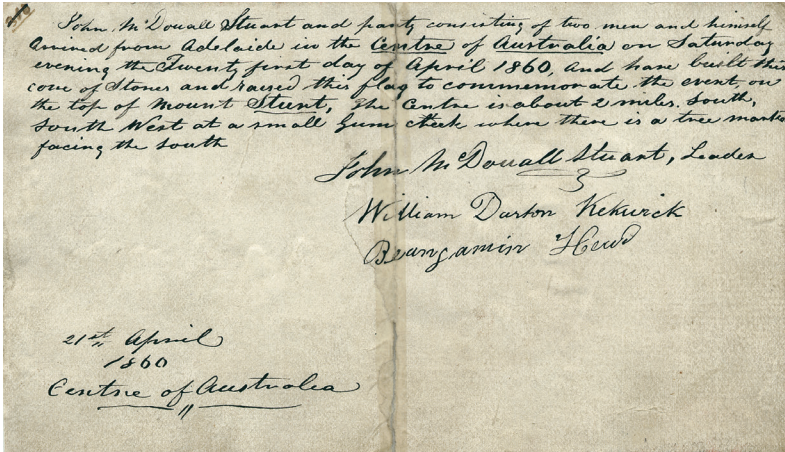 John McDouall Stuart and party consisting of two men and himself
arrived from Adelaide in the Centre of Australia on Saturday
evening the Twenty first day of April 1860, and have built this
cone of Stones and raised this flag to commemorate the event, on
the top of Mount Sturt, The Centre is about 2 miles. South,
South West at a small Gum creek where there is a tree marked
facing the South
John McDouall Stuart, Leader
William Darton Kekwick
Beangamin Head
21st April
1860
Centre of Australia